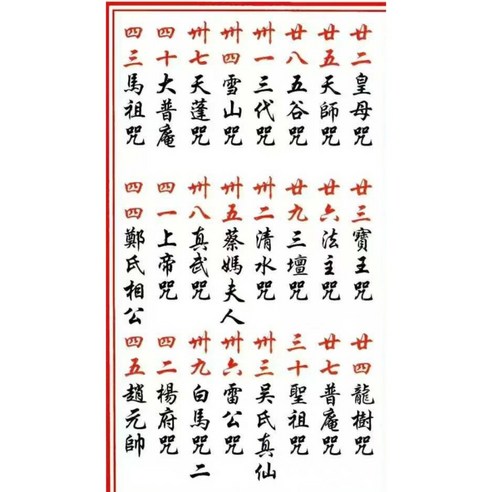 廿二皇母咒
廿三寶王咒
廿四龍樹咒
廿五天師咒
廿六法主咒
廿七普庵咒
廿八五谷咒
廿九三壇咒
三十聖祖咒
卅一三代咒
卅二清水咒
卅三吴氏真仙
卅四雪山咒
卅五蔡媽夫人
卅六雷公咒
卅七天蓬咒
卅八真武咒
卅九白馬咒二
四十大普庵
四一上帝咒
四二楊府咒
四三馬祖咒
四四鄭氏相公
四五趙元帥